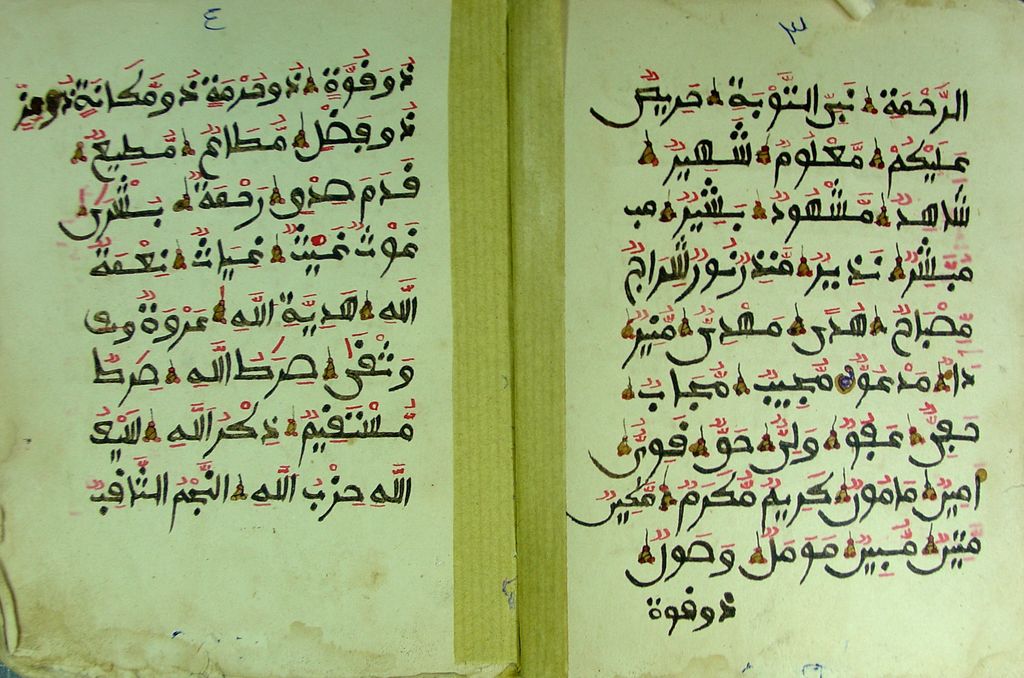 ٣
الرَّحْمَةِ نَبِيُّ التَّوْبَةِ حَرِيصٌ
عَلَيْكُمْ مَّعْلُومٌ شَهِيرٌ
شَاهِدٌ مَّشْهُودٌ بَشِيرٌ مب
مبَشِّرٌ نَذِيرٌ مُّنذِرٌ نُورٌ سِرَاجٌ
مِصْبَاحٌ هُدًى مَهْدِيٌّ مُّنِيرٌ
داع مَدْعُوٌّ مُّجِيبٌ مُّجَابٌ
حَفِيٌّ عَفُوٌّ وَلِيٌّ حَقٌّ قَوِيٌّ
امِينٌ مَامُونٌ كَرِيمٌ مُّكَرَّمٌ مَّكِينٌ
مَتِينٌ مُّبِينٌ مُومَلٌ وَصُولٌ
ذو قوة
٤
ذُو قُوَّةٍ ذُو حُرْمَةٍ ذُو مَكَانَةٍ ذو عز
ذُو فَضْلٍ مُّطَاعٌ مُّطِيعٌ
قَدَمُ صِدْقٍ رَحْمَةٌ بُشْرَى
غَوْثٌ غَيْثٌ غِيَاثٌ نِعْمَةُ
اللَّهِ هَدِيَّةُ اللَّهِ عُرْوَةٌ وث
وُثْقَى صِرَطُ اللَّهِ صِرَطٌ
مُّسْتَقِيمٌ ذِكْرُ اللَّهِ سَيْفُ
اللَّهِ حِزْبُ اللَّهِ النَّجْمُ الثَّاقِبُ